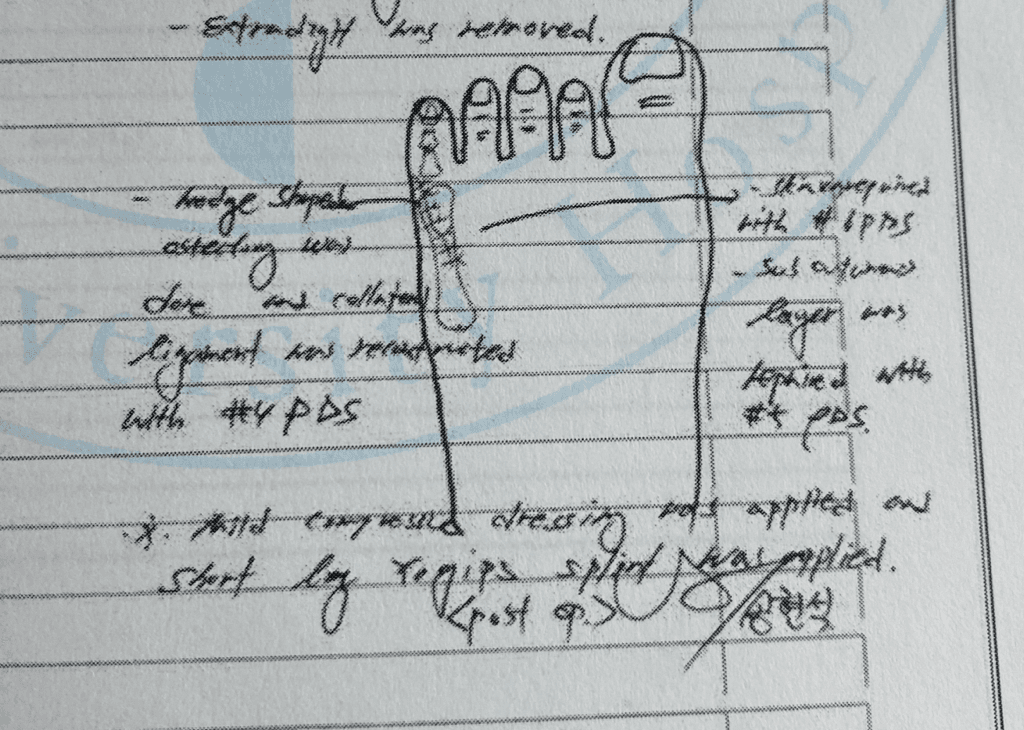 - Extradigit was removed.
- wedge shaped
osteotomy was
done and collateral
ligament was reconstructed
with #4 PDS
- Skin was repaired
with # 6 PDS
- Subcutaneous
layer was
repaired with
#4 PDS.
※. Mild compressive dressing was applied and
short leg splint was applied.
<post op.>
versity Hosp